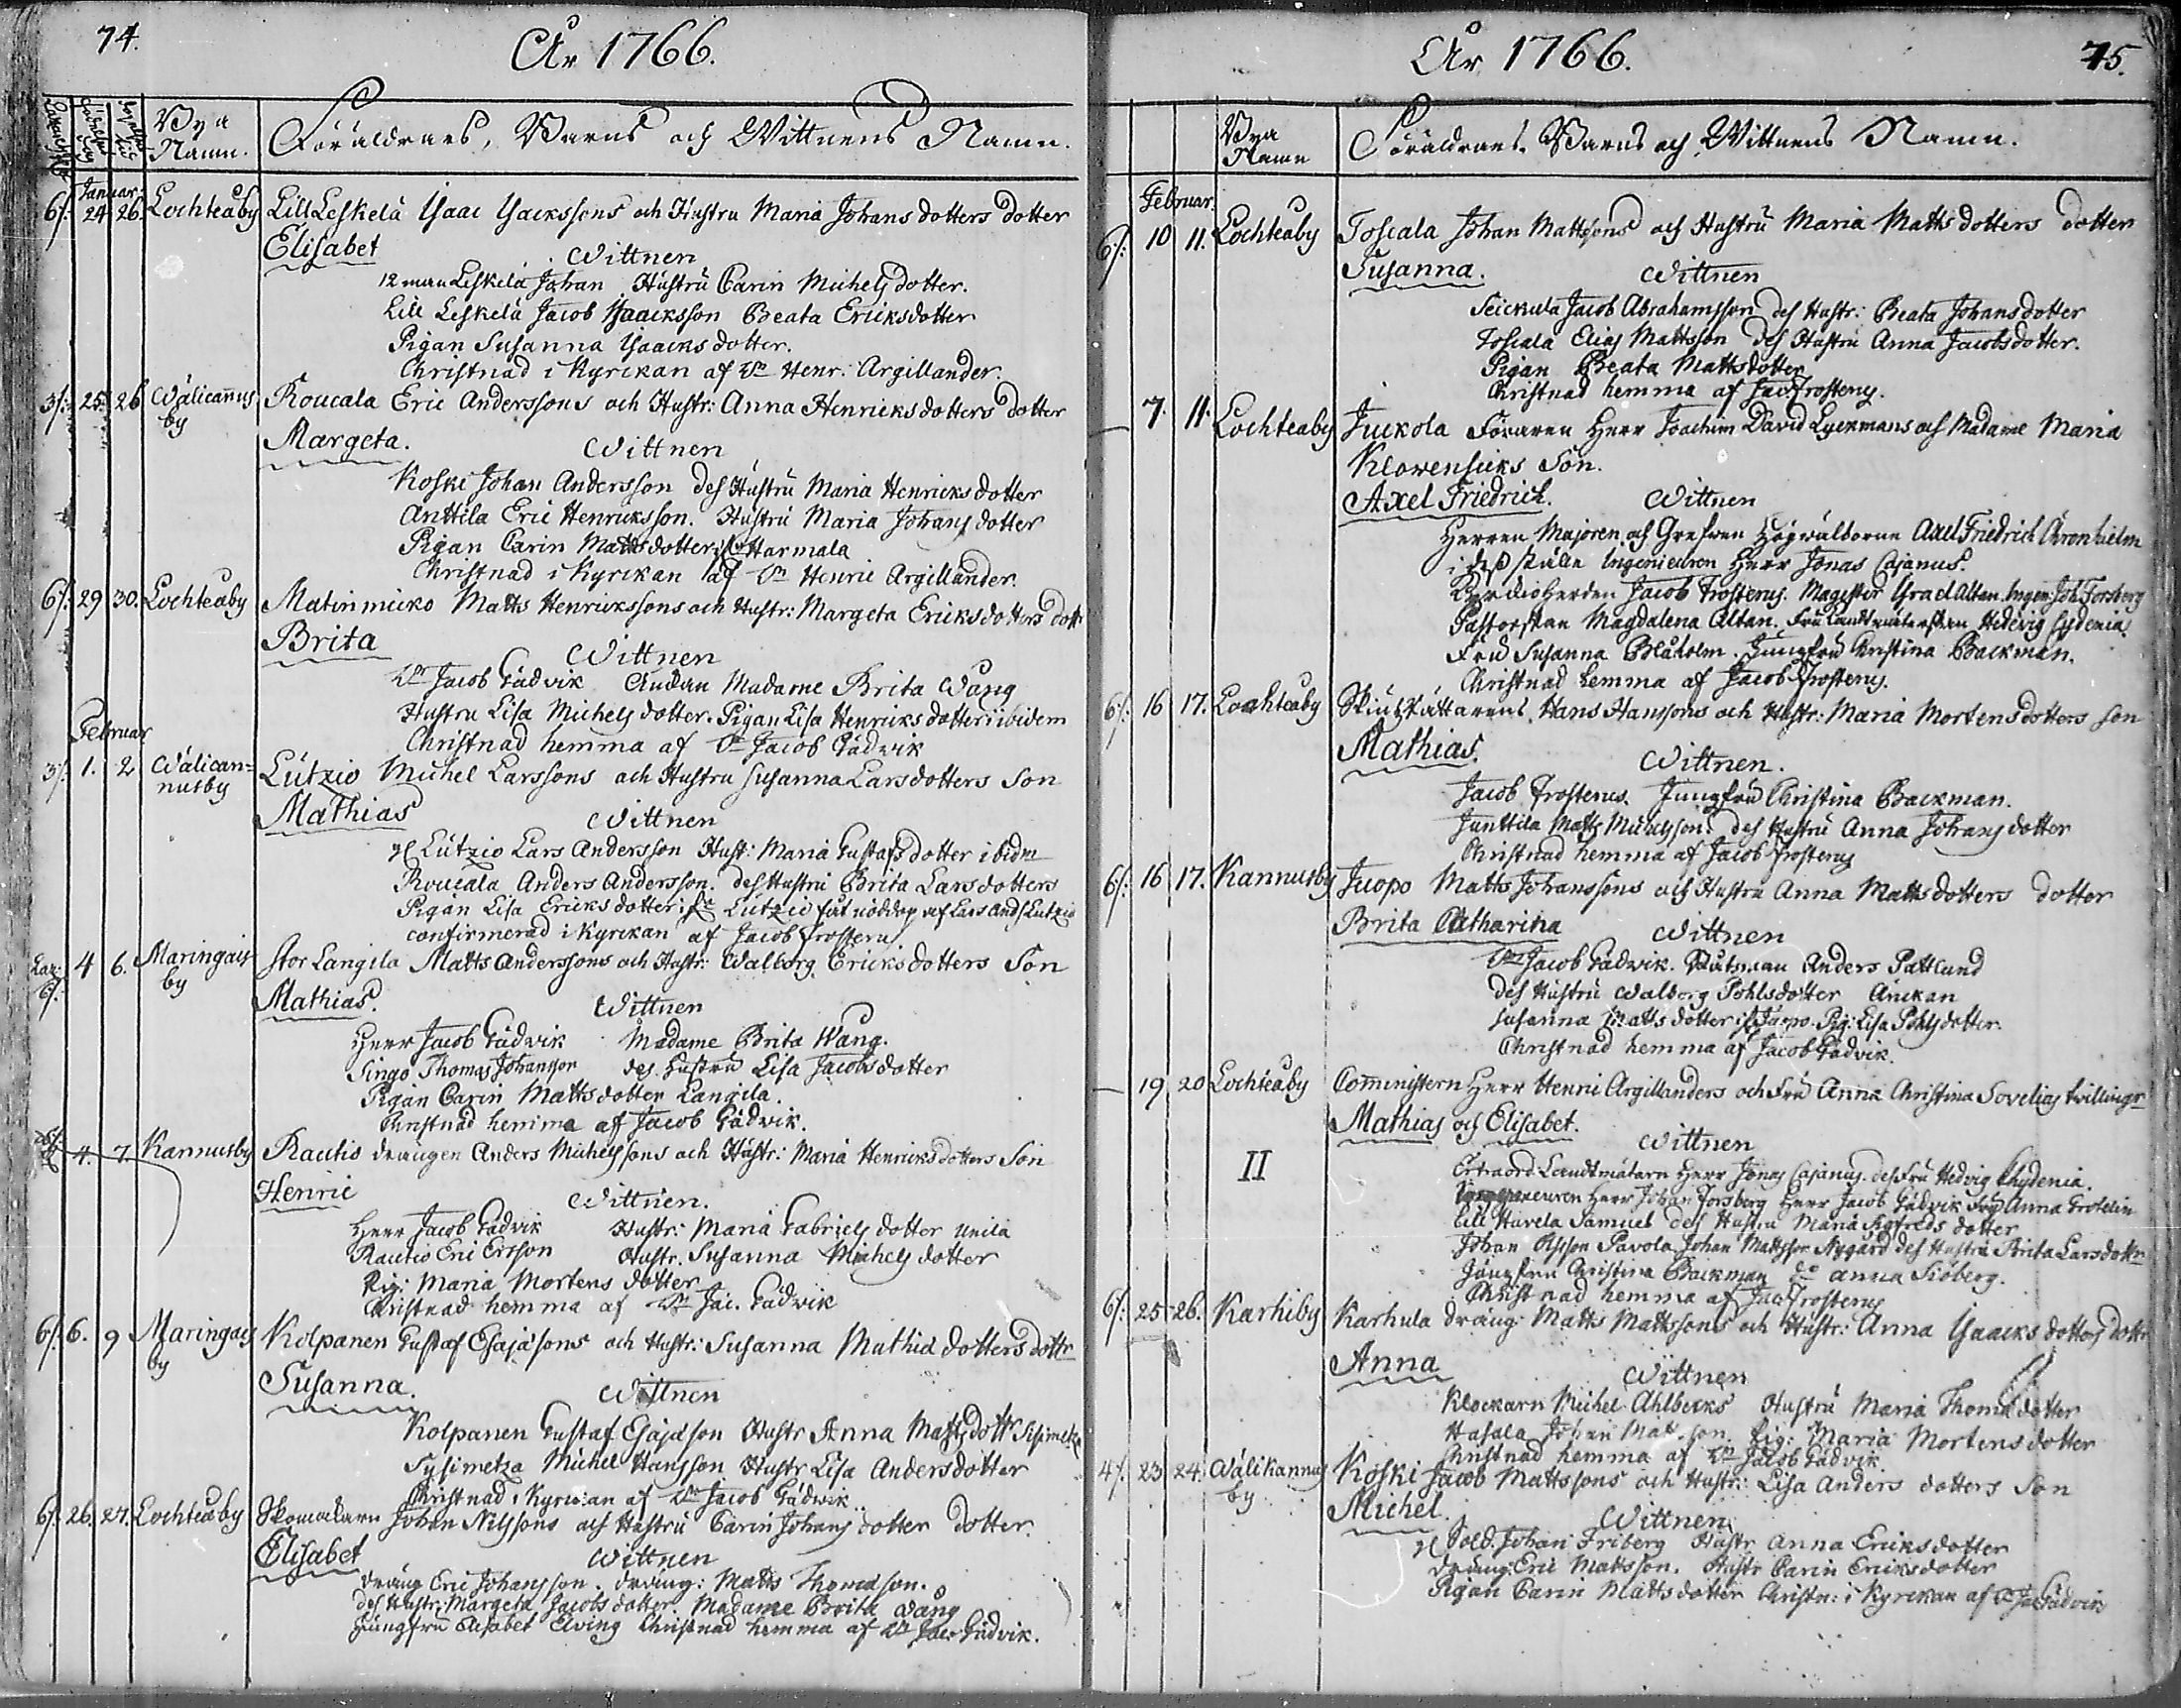 74.
År 1766.
Bya
Namn.
Föräldrars, Barns och Wittnens Namn.
Januar:
6/: 24 26. Lochteåby Lill Leskelä Ysaac Ysackssons och Hustru Maria Johans dotters dotter
Elisabet Wittnen
12 man Leskelä Johan Hustru Carin Michels dotter.
Lill Leskelä Jacob Ysaacksson Beata Ericksdotter
Pigan Susanna Ysaacks dotter.
Christnad i Kyrckan af Hr Henr: Argillander.
3/: 25. 26 Wälicannus Roucala Eric Anderssons och Hustr: Anna Henricks dotters dotter
by
Margeta. Wittnen
Koski Johan Andersson des Hustru Maria Henricks dotter
Anttila Eric Henricksson. Hustru Maria Johans dotter
Pigan Carin Matts dotter Harmala
Christnad i Kyrckan af Hr Henric Argillander.
6/: 29 30. Lochteåby Matin micko Matts Henrickssons och Hustr: Margeta Ericks dotters dott
Brita Wittnen
Hr Jacob Gådvik Madame Brita Wang
Hustru Lisa Michels dotter. Pigan Lisa Henricks dotter ibidem
Christnad hemma af Hr Jacob Gådvik
Februar
3/: 1. 2 Wälican=
nusby
Lutzio Michel Larssons och Hustru Susanna Lars dotters Son
Mathias Wittnen
Lutzio Lars Andersson Hust: Maria Gustafs dotter ibidm
Roucala Anders Andersson. des Hustru Brita Lars dotters
Pigan Lisa Ericks dotter Lutzio fåt nöddop af Lars Ands Lutzio
confirmerad i Kyrckan af Jacob Frosterus
6/: 4 6. Maringais
by
Stor Langila Matts Anderssons och Hustr: Walborg Ericks dotters Son
Mathias. Wittnen
Herr Jacob Gådvik Madame Brita Wang.
Singo Thomas Johansson des Hustru Lisa Jacobs dotter
Pigan Carin Matts dotter Langila.
Christnad hemma af Jacob Gådvik.
4. 7. Kannusby Rautio drängen Anders Michelssons och Hustr: Maria Henricks dotters Son
Henric Wittnen.
Herr Jacob Gådvik Hustr: Maria Gabriels dotter Unila
Rautio Eric Ersson Hustr. Susanna Michels dotter
Pig: Maria Mortens dotter
Christnad hemma af Hr Jac. Gådvik
6/: 6. 9 Maringais
by
Kolpanen Gustaf Esajæsons och Hustr: Susanna Mathiæ dotters dottr
Susanna. Wittnen
Kolpanen Gustaf Esajæson Hustr Anna Matts dottr
Sysimetza Michel Hansson Hustr Lisa Anders dotter
Christnad i Kyrckan af Hr Jacob Gådvik.
6/: 26. 27. Lochteåby Skomakarn Johan Nilssons och Hustru Carin Johans dotter dotter.
Elisabet Wittnen
dräng Eric Johansson. dräng: Matts Thomæson.
des Hustr: Margeta Jacobs dotter. Madame Brita Wang
Jungfru Elisabet Elving Christnad hemma af Hr Jac: Gådvik.
År 1766.
75.
Bya
Namn
Föräldrars, Barns och Wittnens Namn.
Februar.
6/: 10 11. Lochteåby Toscala Johan Mattssons och Hustru Maria Matts dotters dotter
Susanna. Wittnen
Seickula Jacob Abrahamsson des Hustr: Beata Johans dotter
Toscala Elias Mattsson des Hustru Anna Jacobs dotter.
Pigan Beata Matts dotter
Christnad hemma af Jac Frosterus.
7. 11. Lochteåby Juckola Föraren Herr Joachim David Lyckmans och Madame Maria
Klowensicks Son.
Axel Friedrich. Wittnen
Herren Majoren och Grefwen Högwälborne Axel Friedrich Åkronhielm
i des ställe Ingenieuren Herr Jonas Cajanus.
Kyrckioherden Jacob Frosterus. Magister Altan. Ingen: Joh Forsberg
Pastorskan Magdalena Altan. Fru Landtmäterskan Hedvig Chydenia.
Fru Susanna Blåholm. Jungfru Christina Backman.
Christnad hemma af Jacob Frosterus.
6/: 16 17. Lochteåby Skiutskättarens Hans Hanssons och Hustr: Maria Mortens dotters son
Mathias. Wittnen.
Jacob Frosterus. Jungfru Christina Backman.
Junttila Matts Michelsson des Hustru Anna Johans dotter
Christnad hemma af Jacob Frosterus
6/: 16 17. Kannusby Juopo Matts Johanssons och Hustru Anna Matts dotters dotter
Brita Catharina Wittnen
Hr Jacob Gådvik. Båtsman Anders Pattlund
des Hustru Walborg Pohls dotter Änckan
Susanna Matts dotter Juopo. Pig: Lisa Pohls dotter.
Christnad hemma af Jacob Gådvik.
19 20 Lochteåby Comministern Herr Henric Argillanders och Fru Anna Christina Sovelias tvillingr
Mathias och Elisabet. Wittnen
II
Extraord. Landtmätarn Herr Jonas Cajanus. des Fru Hedvig Chydenia.
Ingenieuren Herr Johan Forsberg Herr Jacob Gådvik Fru Anna Grotelin
Lill Havela Samuel des Hustru Maria Sigfreds dotter
Johan Olsson Pavola Johan Mattsson Nygård des Hustru Brita Lars dottr
Jungfru Christina Backman do Anna Siöberg.
Christnad hemma af Jac Frosterus
6/: 25 26. Karhiby Karhula dräng: Matts Mattssons och Hustr: Anna Ysaacks dotters dottr
Anna Wittnen
Klockarn Michel Ahlbecks Hustru Maria Thomæ dotter
Hasala Johan Mat. son. Pig: Maria Mortens dotter
Christnad hemma af Hr Jacob Gådvik
4/: 23 24. Wälikannus
by
Koski Jacob Mattssons och Hustr: Lisa Anders dotters Son
Michel. Wittnen
Sold. Johan Friberg Hustr Anna Ericks dotter
dräng: Eric Mattsson. Hustr Carin Ericks dotter
Pigan Carin Matts dotter Christn: i Kyrckan af Hr Jac Gådvik